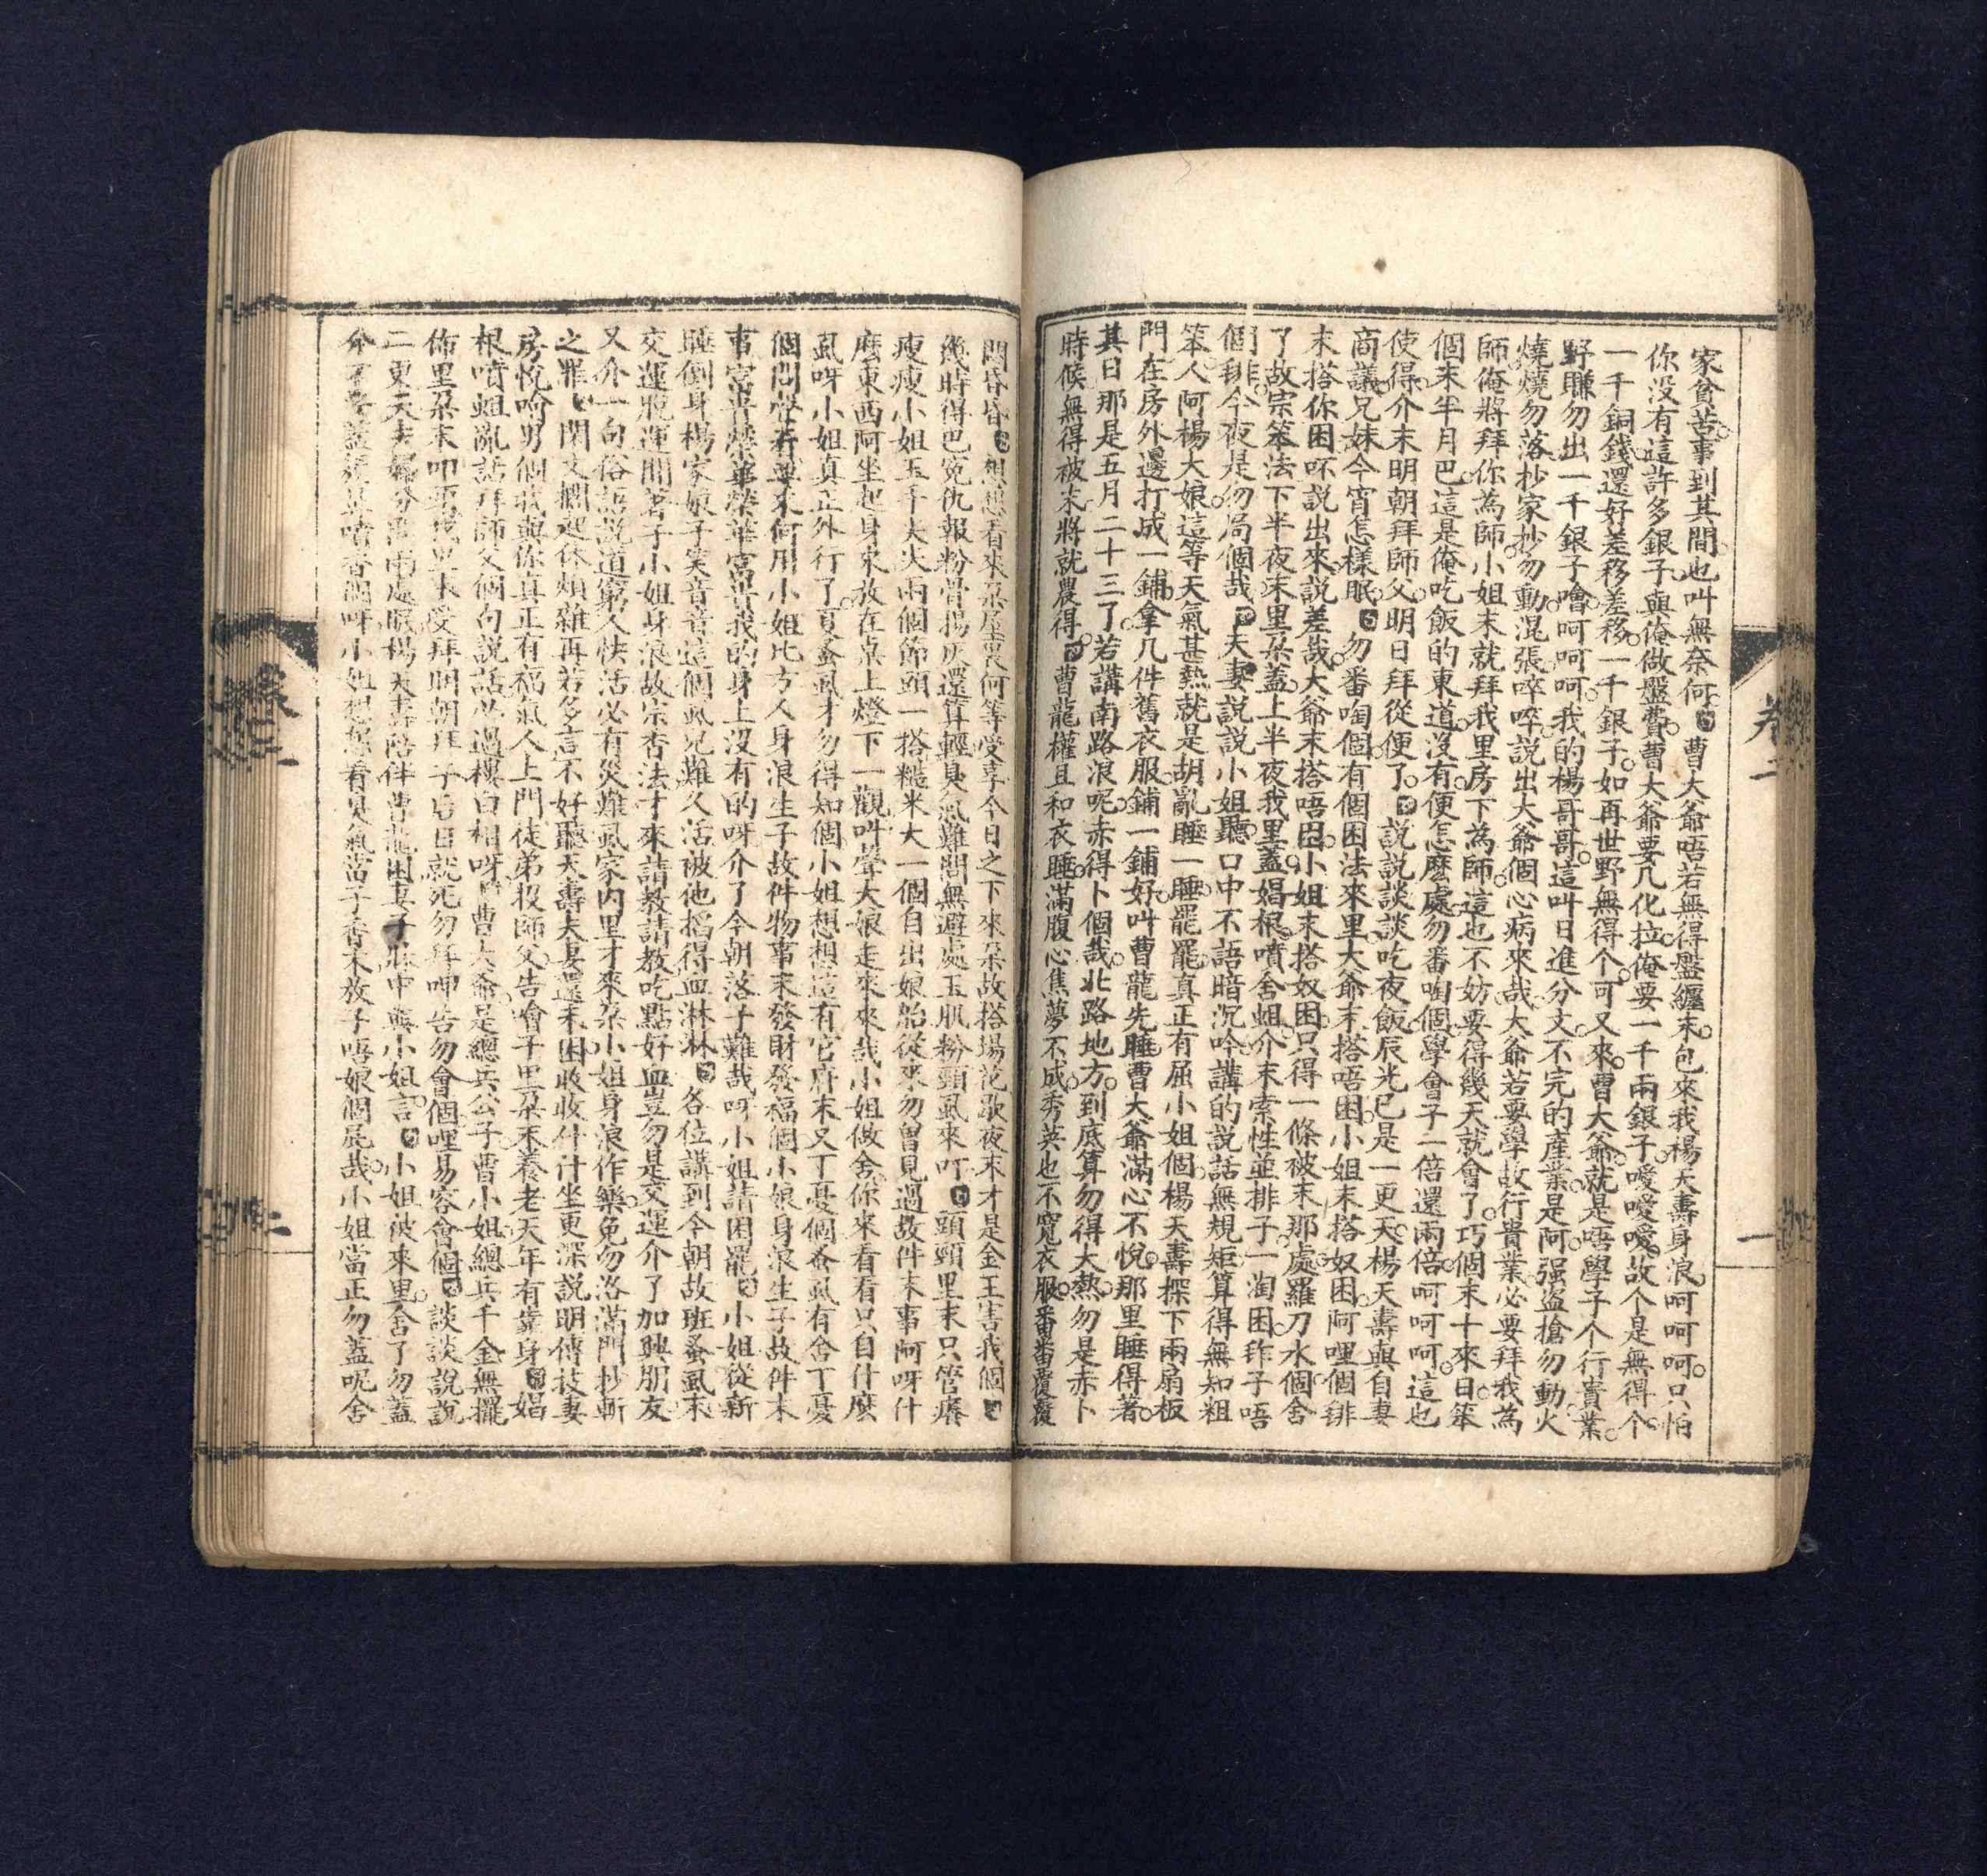 家貧苦事到其間也叫無奈何曹大爺唔若無得盤纏末包來我楊天壽身浪呵呵呵只怕
你沒有這許多銀子與俺做盤費曹大爺要几化拉俺要一千兩銀子嗳嗳嗳故个是無得个
一千銅錢還好差移差移一千銀子如再世野無得个可又來曹大爺就是唔學子个行賣業
野賺勿出一千銀子噲呵呵呵我的楊哥哥這叫日進分文不完的產業是阿强盜搶勿動火
燒燒勿落抄家抄勿動混張啐啐說出大爺個心病來哉大爺若要學故行貴業必要拜我為
師俺將拜你為師小姐末就拜我里房下為師這也不妨要得幾天就會了巧個末十來日笨
個末半月巴這是俺吃飯的東道沒有便怎麼處勿番啕個學會子一倍還兩倍呵呵呵這也
使得介末明朝拜師父明日拜從便了說說談談吃夜飯辰光已是一更天楊天壽與自妻
商議兄妹今宵怎樣眠勿番啕個有個困法來里大爺末搭唔困小姐末搭奴困阿哩個徘
末搭你困呸說出來說差哉大爺末搭唔困小姐末搭奴困只得一條被末那處羅刀水個舍
了故宗笨法下半夜末里朵蓋上半夜我里蓋娼根噴舍蛆介末索性並排子一淘困筰子唔
個徘今夜是勿局個哉夭妻說說小姐聽口中不語暗沉吟講的說話無規矩算得無知粗
笨人阿楊大娘這等天氣甚熱就是胡亂睡一睡罷罷真正有屈小姐個楊天壽探下兩扇板
門在房外邊打成一鋪拿几件舊衣服鋪一鋪好叫曹龍先睡曹大爺滿心不悅那里睡得著
其日那是五月二十三了若講南路浪呢赤得卜個哉北路地方到底算勿得大熱勿是赤卜
時候無得被末將就農得曹龍權且和衣睡滿腹心焦夢不成秀英也不寬衣服番番覆覆
悶昏昏想想看來朵屋裏何等受享今日之下來朵故搭場花歇夜末才是金王害我個
幾時得巴寃仇報粉骨揚灰還算輕臭氣難聞無避處玉肌粉頸虱來叮頭頸里末只管癢
瘦瘦小姐玉手大大兩個節頭一搭糙米大一個自出娘胎從來勿曾見過故件末事阿呀什
麼東西阿坐起身來放在桌上燈下一觀叫聲大娘走來來哉小姐做舍你來看看只自什麼
虱呀小姐真正外行了頁蚤虱才勿得知個小姐想想這有它府末又丁憂個蚤虱有舍丁憂
個問壁若辜末何用小姐比方人身浪生子故件物事末發財發福個小娘身浪生子故件末
事富貴榮華榮華富貴我的身上沒有的呀介了今朝落子難哉呵小姐請困罷小姐從新
睡倒身楊家娘子笑音音這個虱兄難久活被他搯得血淋淋各位講到今朝故班蚤虱末
交運脫運聞著子小姐身浪故宗杏法才來請教請教吃點好血豈勿是交運介了加興朋友
又介一句俗語說道窮人快活必有災難虱家內里才來朵小姐身浪作樂免勿洛滿門抄斬
之罪閑文擱起休煩雜再若多言不好聽天壽夫妻還未困收收什什坐更深說明傳技妻
房悅喻男個哉與你真正有福氣人上門徒弟投師父告會子里朵末養老天年有靠身娼
根噴蛆亂話拜師父個句說話必過樓白相呀曹大爺是總兵公子曹小姐總兵千金無擺
佈里朵末叩再我里末受拜明朝拜子后日就死勿拜呷告勿會個哩易容會個談談說說
二更天夫婦分開兩處眠楊天壽陪伴曹龍困妻子床中與小姐言小姐被來里舍了勿蓋
介末要蓋介末其噴香個呀小姐想想看臭氣當子香末放子唔娘個屁哉小姐當正勿蓋呢舍
卷二
一